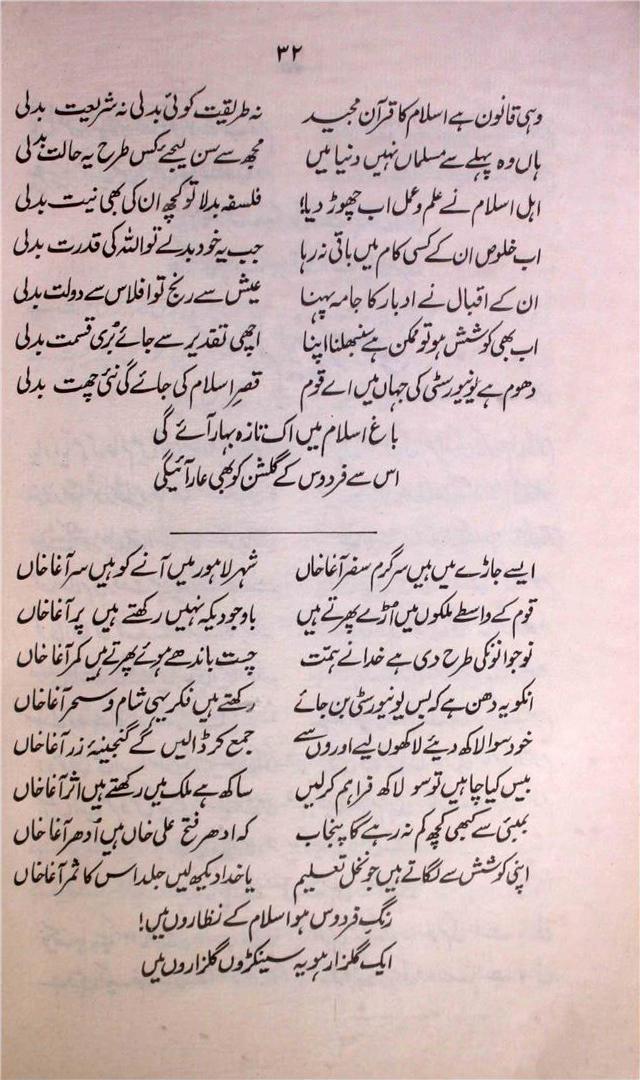 ۳۲
وہی قانون ہے اسلام کا قرآن مجید نہ طریقت کوئی بدلی نہ شریعت بدلی
ہاں وہ پہلے سے مسلماں نہیں دنیا میں مجھ سے سن لیجئے کس طرح یہ حالت بدلی
اہل اسلام نے علم و عمل اب چھوڑ دیا! فلسفہ بدلا تو کچھ ان کی بھی نیت بدلی
اب خلوص ان کے کسی کام میں باقی نہ رہا جب یہ خود بدلے تو اللہ کی قدرت بدلی
ان کے اقبال نے ادبار کا جامہ پہنا عیش سے رنج تو افلاس سے دولت بدلی
اب بھی کوشش ہو تو ممکن ہے سنبھلنا اپنا اچھی تقدیر سے جائے بُری قسمت بدلی
دھوم ہے یونیورسٹی کی جہاں میں اے قوم قصرِ اسلام کی جائے گی نئی چھت بدلی
باغ اسلام میں اک تازہ بہار آئے گی
اس سے فردوس کے گلشن کو بھی عار آئیگی
ایسے جاڑے میں ہیں سرگرم سفر آغا خاں شہر لاہور میں آنے کو ہیں سر آغا خاں
قوم کے واسطے ملکوں میں اُڑے پھرتے ہیں باوجودیکہ نہیں رکھتے ہیں پر آغا خاں
نوجوانونکی طرح دی ہے خدا نے ہمّت چست باندھے ہوئے پھرتے ہیں کمر آغا خاں
انکو یہ دھن ہے کہ بس یونیورسٹی بن جائے رکھتے ہیں فکر یہی شام و سحر آغا خاں
خود سوا لاکھ دیئے لاکھوں لیے اوروں سے جمع کر ڈالیں گے گنجینۂ زر آغا خاں
بیس کیا چاہیں تو سو لاکھ فراہم کر لیں ساکھ ہے ملک میں رکھتے ہیں اثر آغا خاں
بمبئی سے کبھی کچھ کم نہ رہے گا پنجاب کہ ادھر فتح علی خاں ہیں اُدھر آغا خاں
اپنی کوشش سے لگاتے ہیں جو نخل تعلیم یا خدا دیکھ لیں جلد اس کا ثمر آغا خاں
رنگِ فردوس ہو اسلام کے نظاروں میں!
ایک گلزار ہو یہ سینکڑوں گلزاروں میں